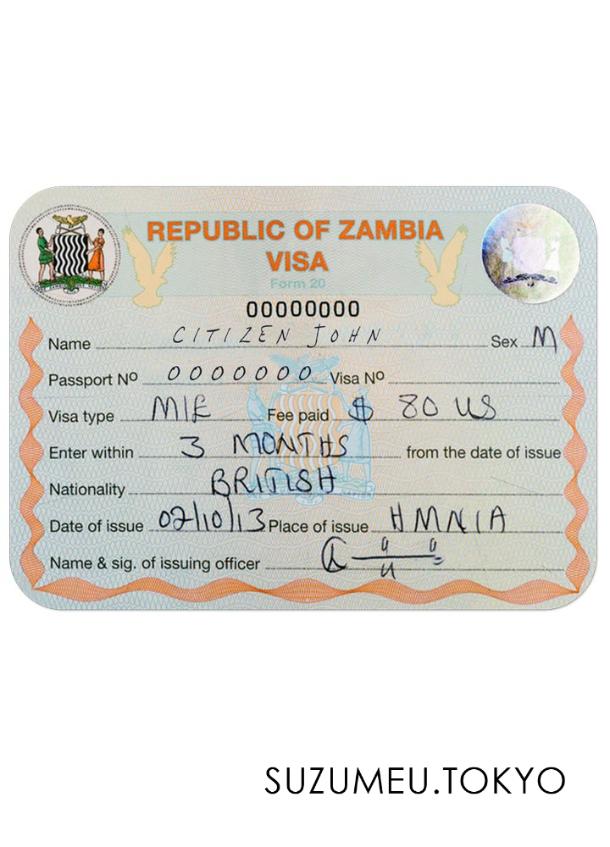 REPUBLIC OF ZAMBIA
VISA
Form 20
00000000
Name CITIZEN JOHN Sex M
Passport Nº 0000000 Visa Nº
Visa type MIE Fee paid $ 80 US
Enter within 3 MONTHS from the date of issue
Nationality BRITISH
Date of issue 02/10/13 Place of issue HMNIA
Name & sig. of issuing officer
SUZUMEU.TOKYO